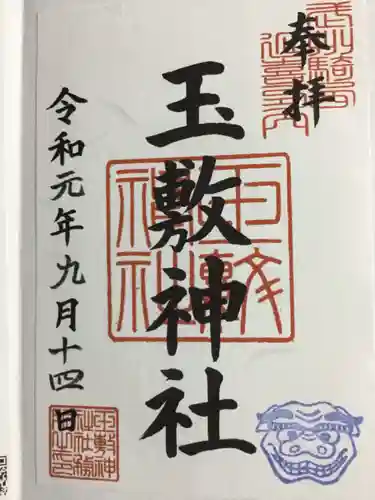 奉拝
玉敷神社
令和元年九月十四日
玉敷神社